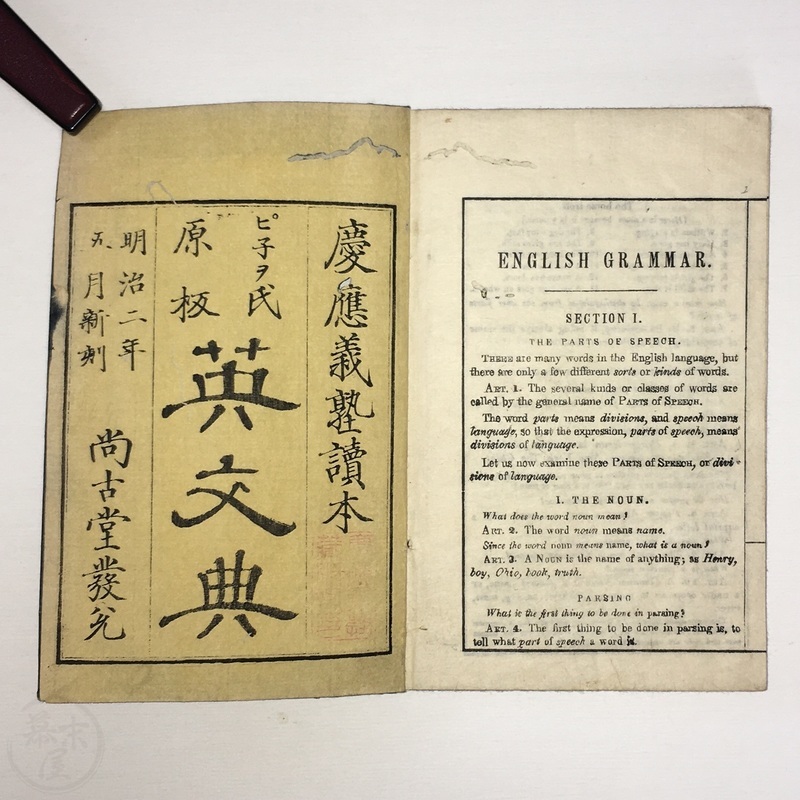 慶應義塾讀本
ピ子ヲ氏
原板
英文典
明治二年
五月新刻
尚古堂發兌
2
ENGLISH GRAMMAR.
SECTION I.
THE PARTS OF SPEECH.
THERE are many words in the English language, but
there are only a few different sorts or kinds of words.
ART. 1. The several kinds or classes of words are
called by the general name of PARTS OF SPEECH.
The word parts means divisions, and speech means
language, so that the expression, parts of speech, means
divisions of language.
Let us now examine these PARTS OF SPEECH, or divi-
sions of language.
1. THE NOUN.
What does the word noun mean?
ART. 2. The word noun means name.
Since the word noun means name, what is a noun?
ART. 3. A NOUN is the name of anything; as Henry,
boy, Ohio, book, truth.
PARSING
What is the first thing to be done in parsing?
ART. 4. The first thing to be done in parsing is, to
tell what part of speech a word is.
幕末屋